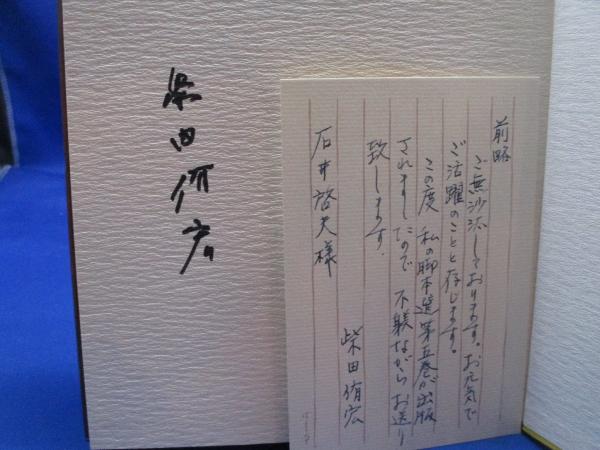 柴田侑宏
前略
ご無沙汰しております。お元気で
ご活躍のことと存じます。
この度 私の脚本選第五巻が出版
されましたので 不躾ながらお送り
致します.
柴田侑宏
石井啓夫様